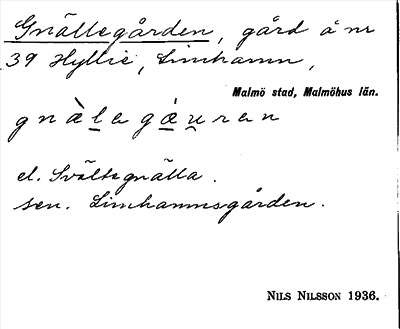 Gnällegården, gård å nr
39 Hyllie, Limhamn,
Malmö stad, Malmöhus län.
gnàlegáuran
el. Svältegnälla.
sen. Limhamnsgården.
NILS NILSSON 1936.